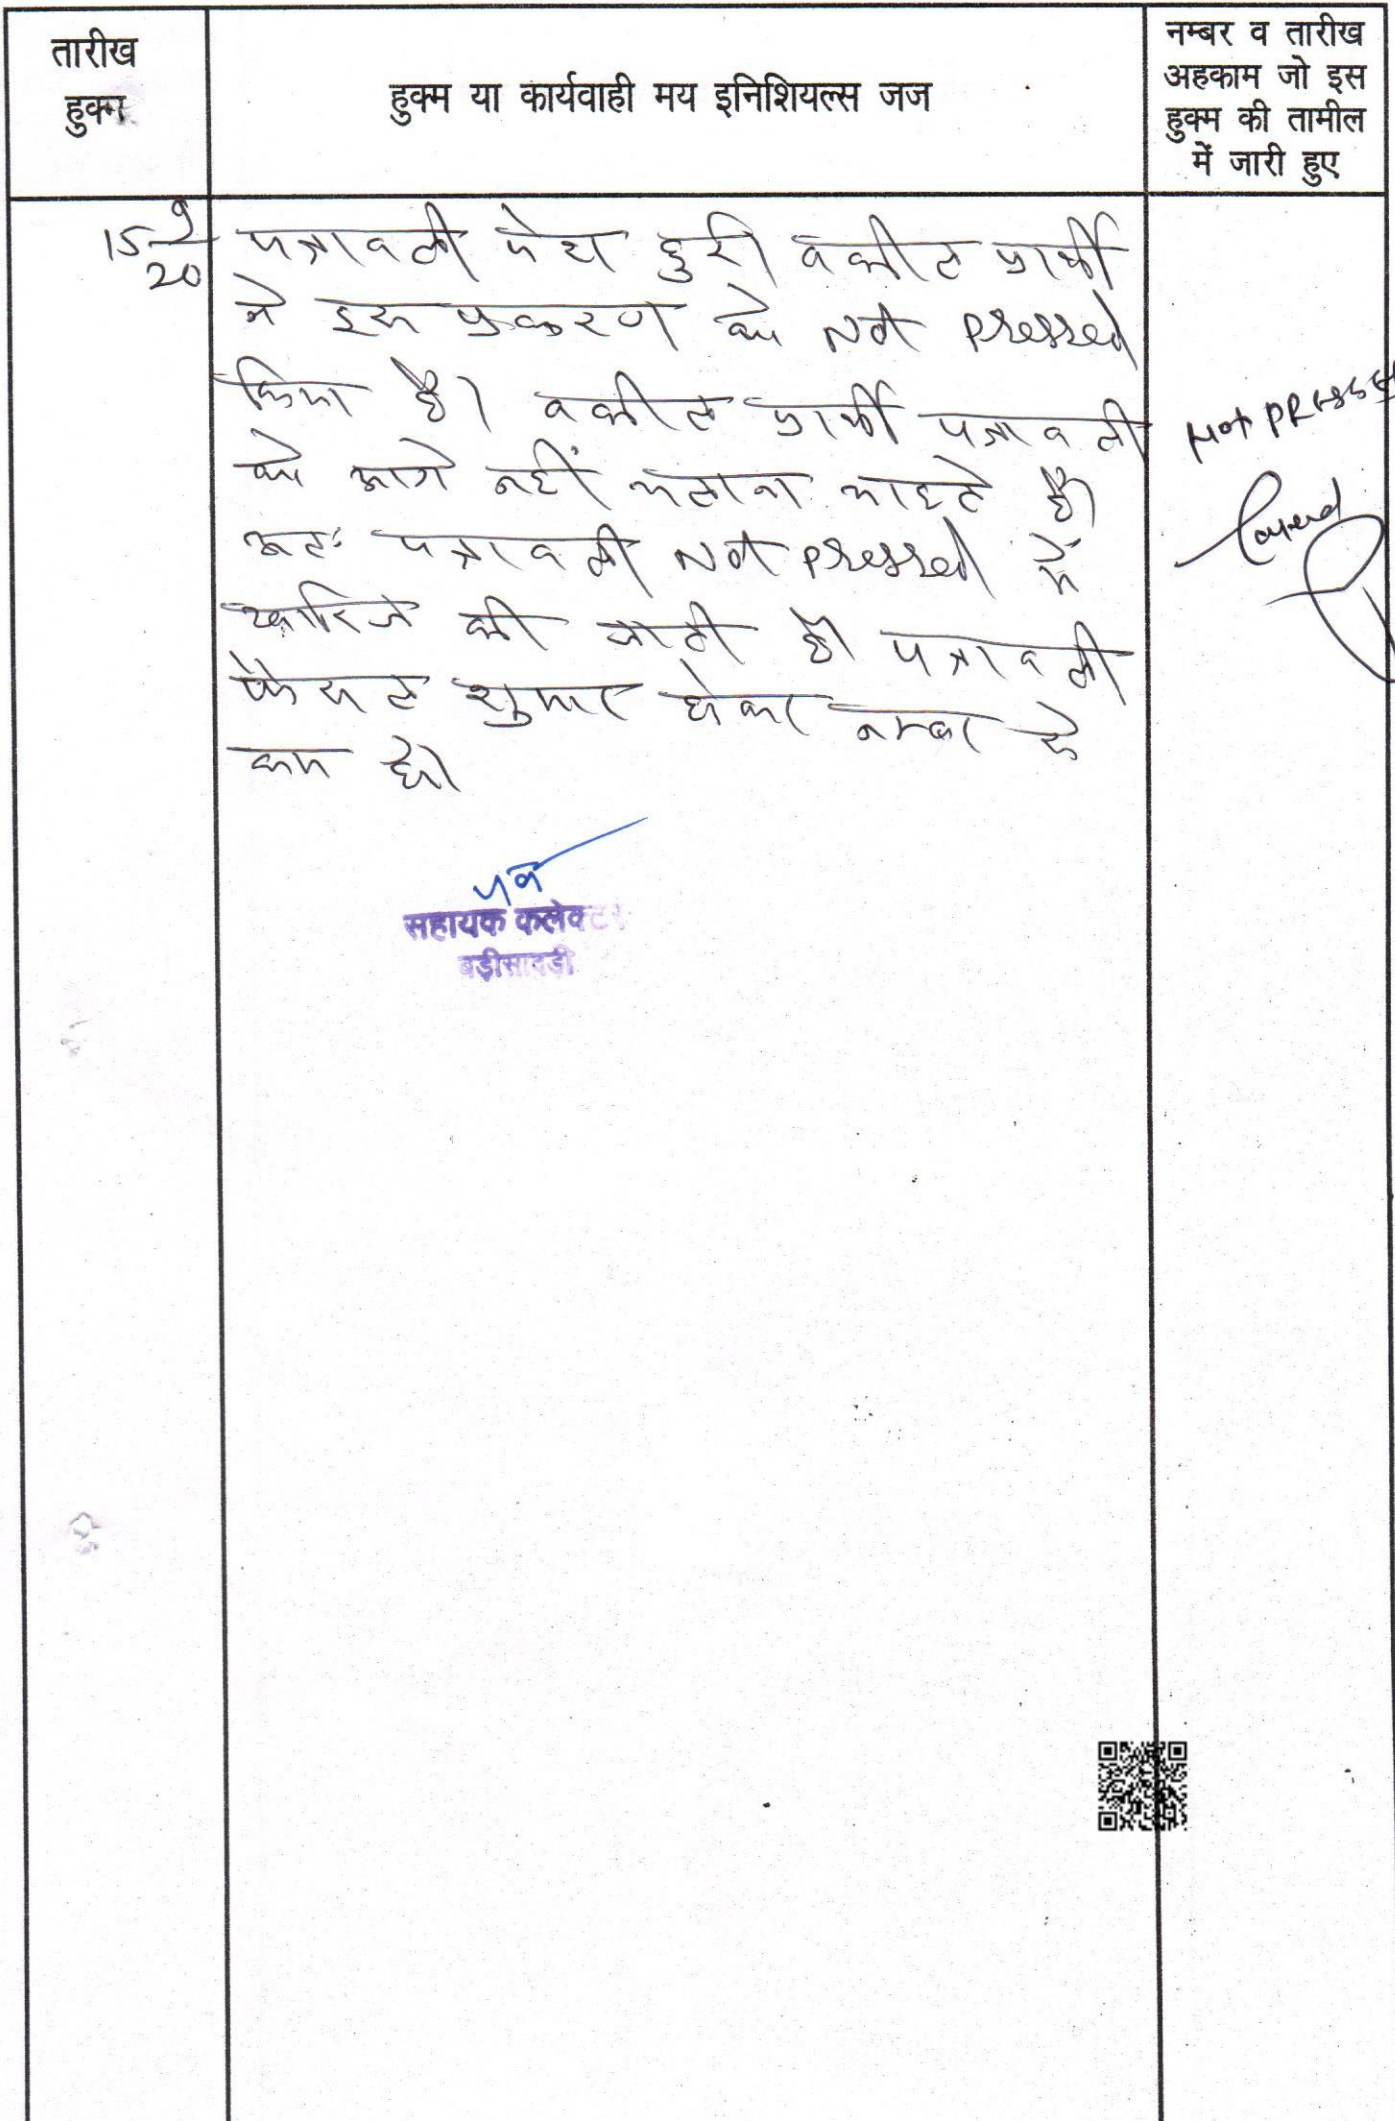 तारीख
हुक्म
हुक्म या कार्यवाही मय इनिशियल्स जज
नम्बर व तारीख
अहकाम जो इस
हुक्म की तामील
में जारी हुए
15 9/20
पत्रावली पेश हुई। वकील प्रार्थी
ने इस प्रकरण को Not pressed
किया है। वकील प्रार्थी पत्रावली
को आगे नहीं चलाना चाहते है।
अतः पत्रावली Not pressed में
खारिज की जाती है। पत्रावली
फैसल शुमार होकर नम्बर से
कम हो।
Not PRESSED
सहायक कलेक्टर
बड़ीसादड़ी